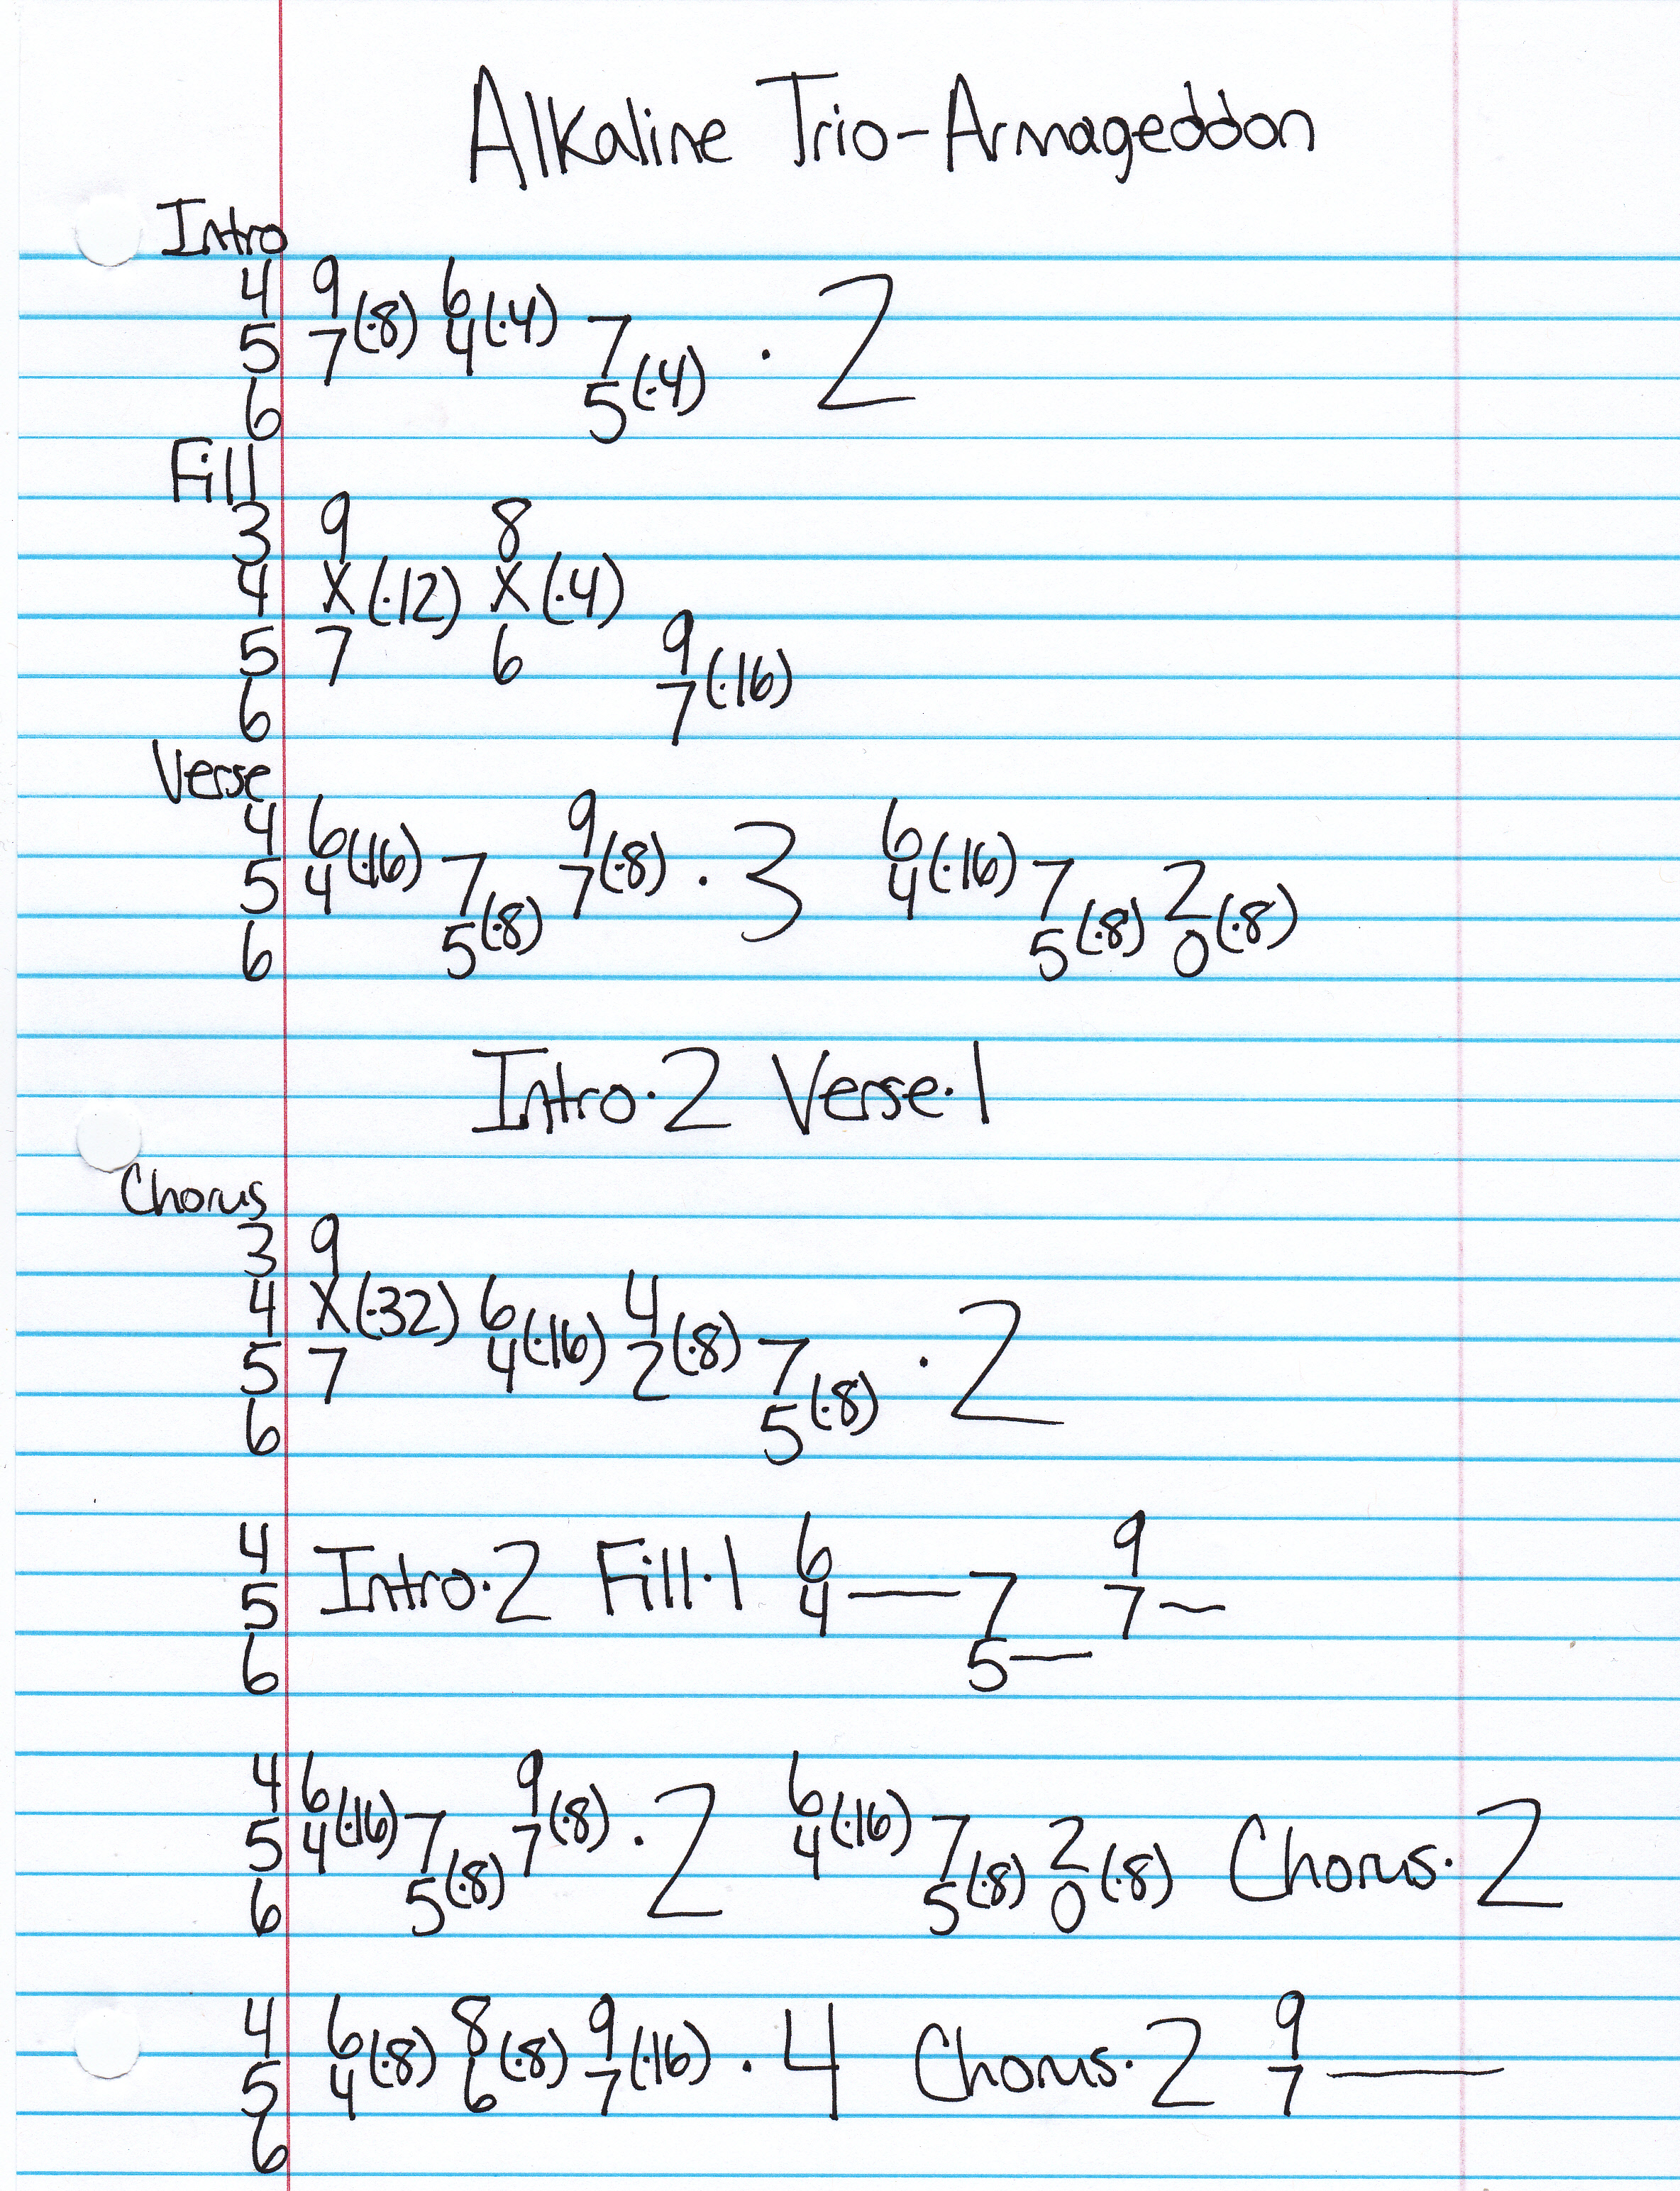 Alkaline Trio-Armageddon
Intro
4 9 6
5 7(·8) 4(·4) 7 · 2
6 5(·4)
Fill
3 9 8
4 X(·12) X(·4)
5 7 6 9
6 7(·16)
Verse
4 6 9 6
5 4(·16) 7 7(·8) · 3 4(·16) 7 2
6 5(·8) 5(·8) 0(·8)
Intro·2 Verse·1
Chorus
3 9
4 X(·32) 6 4
5 7 4(·16) 2(·8) 7 · 2
6 5(·8)
4 6 9
5 Intro·2 Fill·1 4— 7 7~
6 5—
4 6 9 6
5 4(·16) 7 7(·8) · 2 4(·16) 7 2 Chorus·2
6 5(·8) 5(·8) 0(·8)
4 6 8 9 9
5 4(·8) 6(·8) 7(·16) · 4 Chorus·2 7—
6